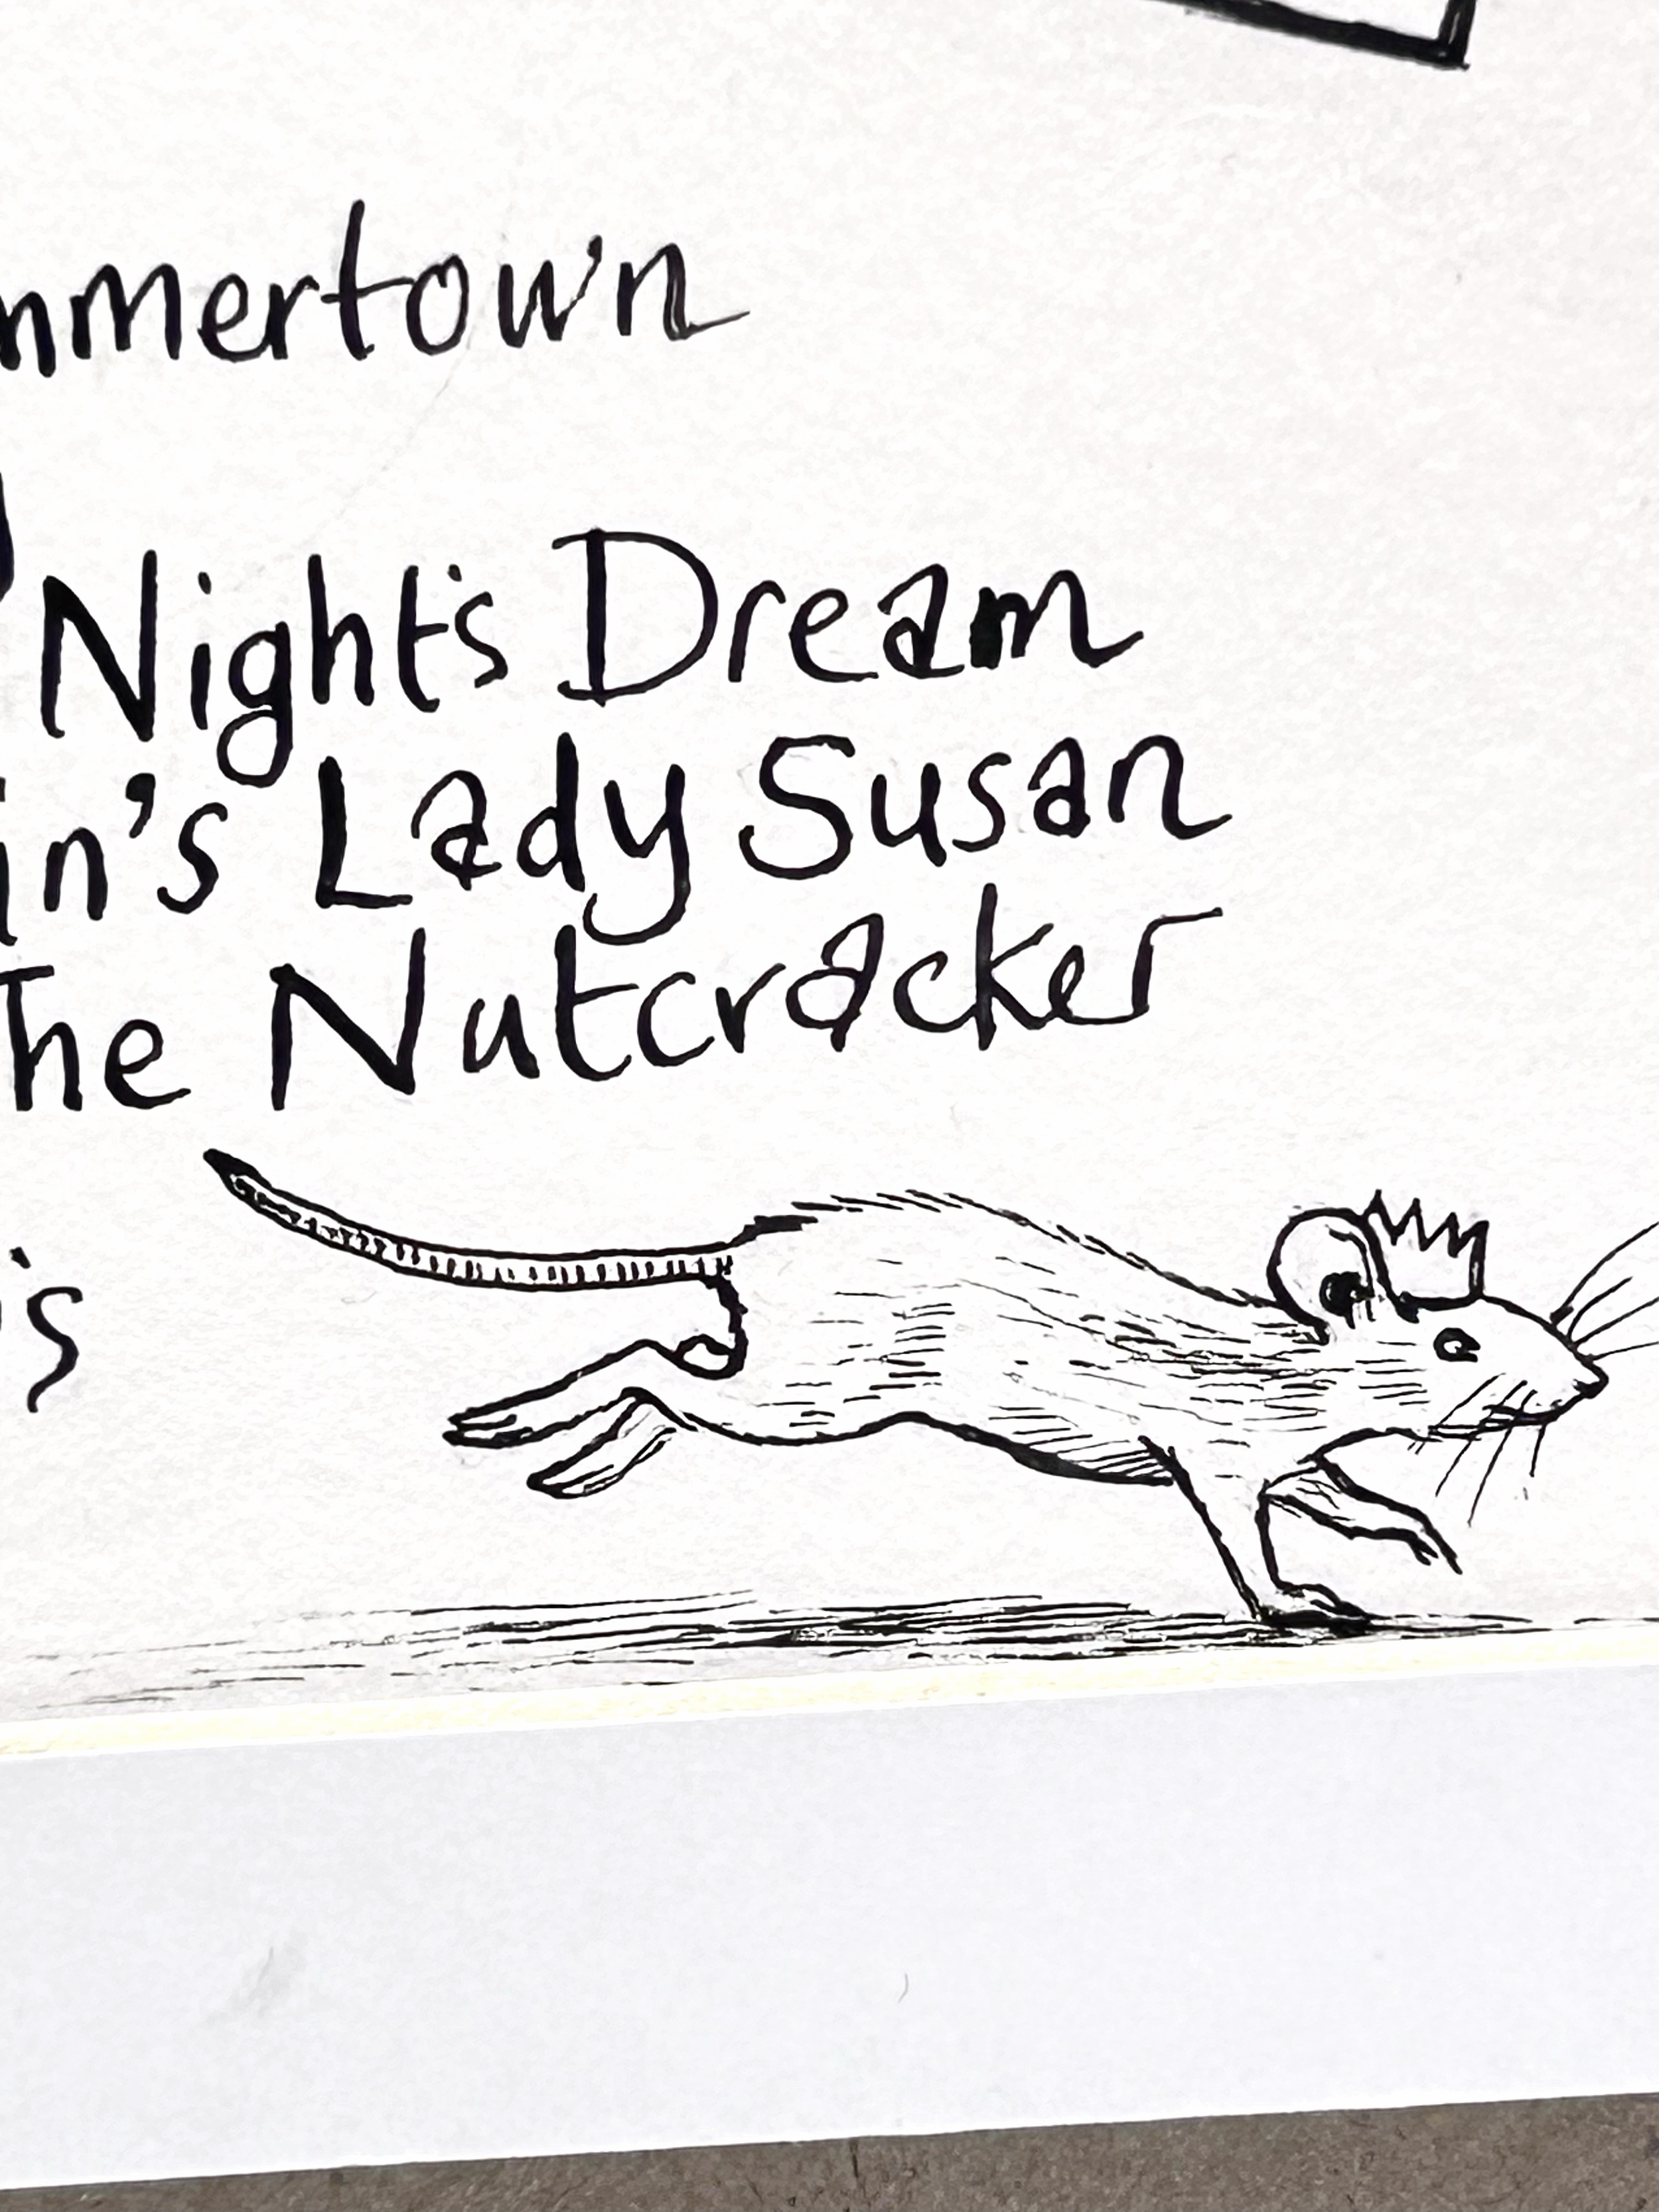 mmertown
Night's Dream
in's Lady Susan
The Nutcracker
's